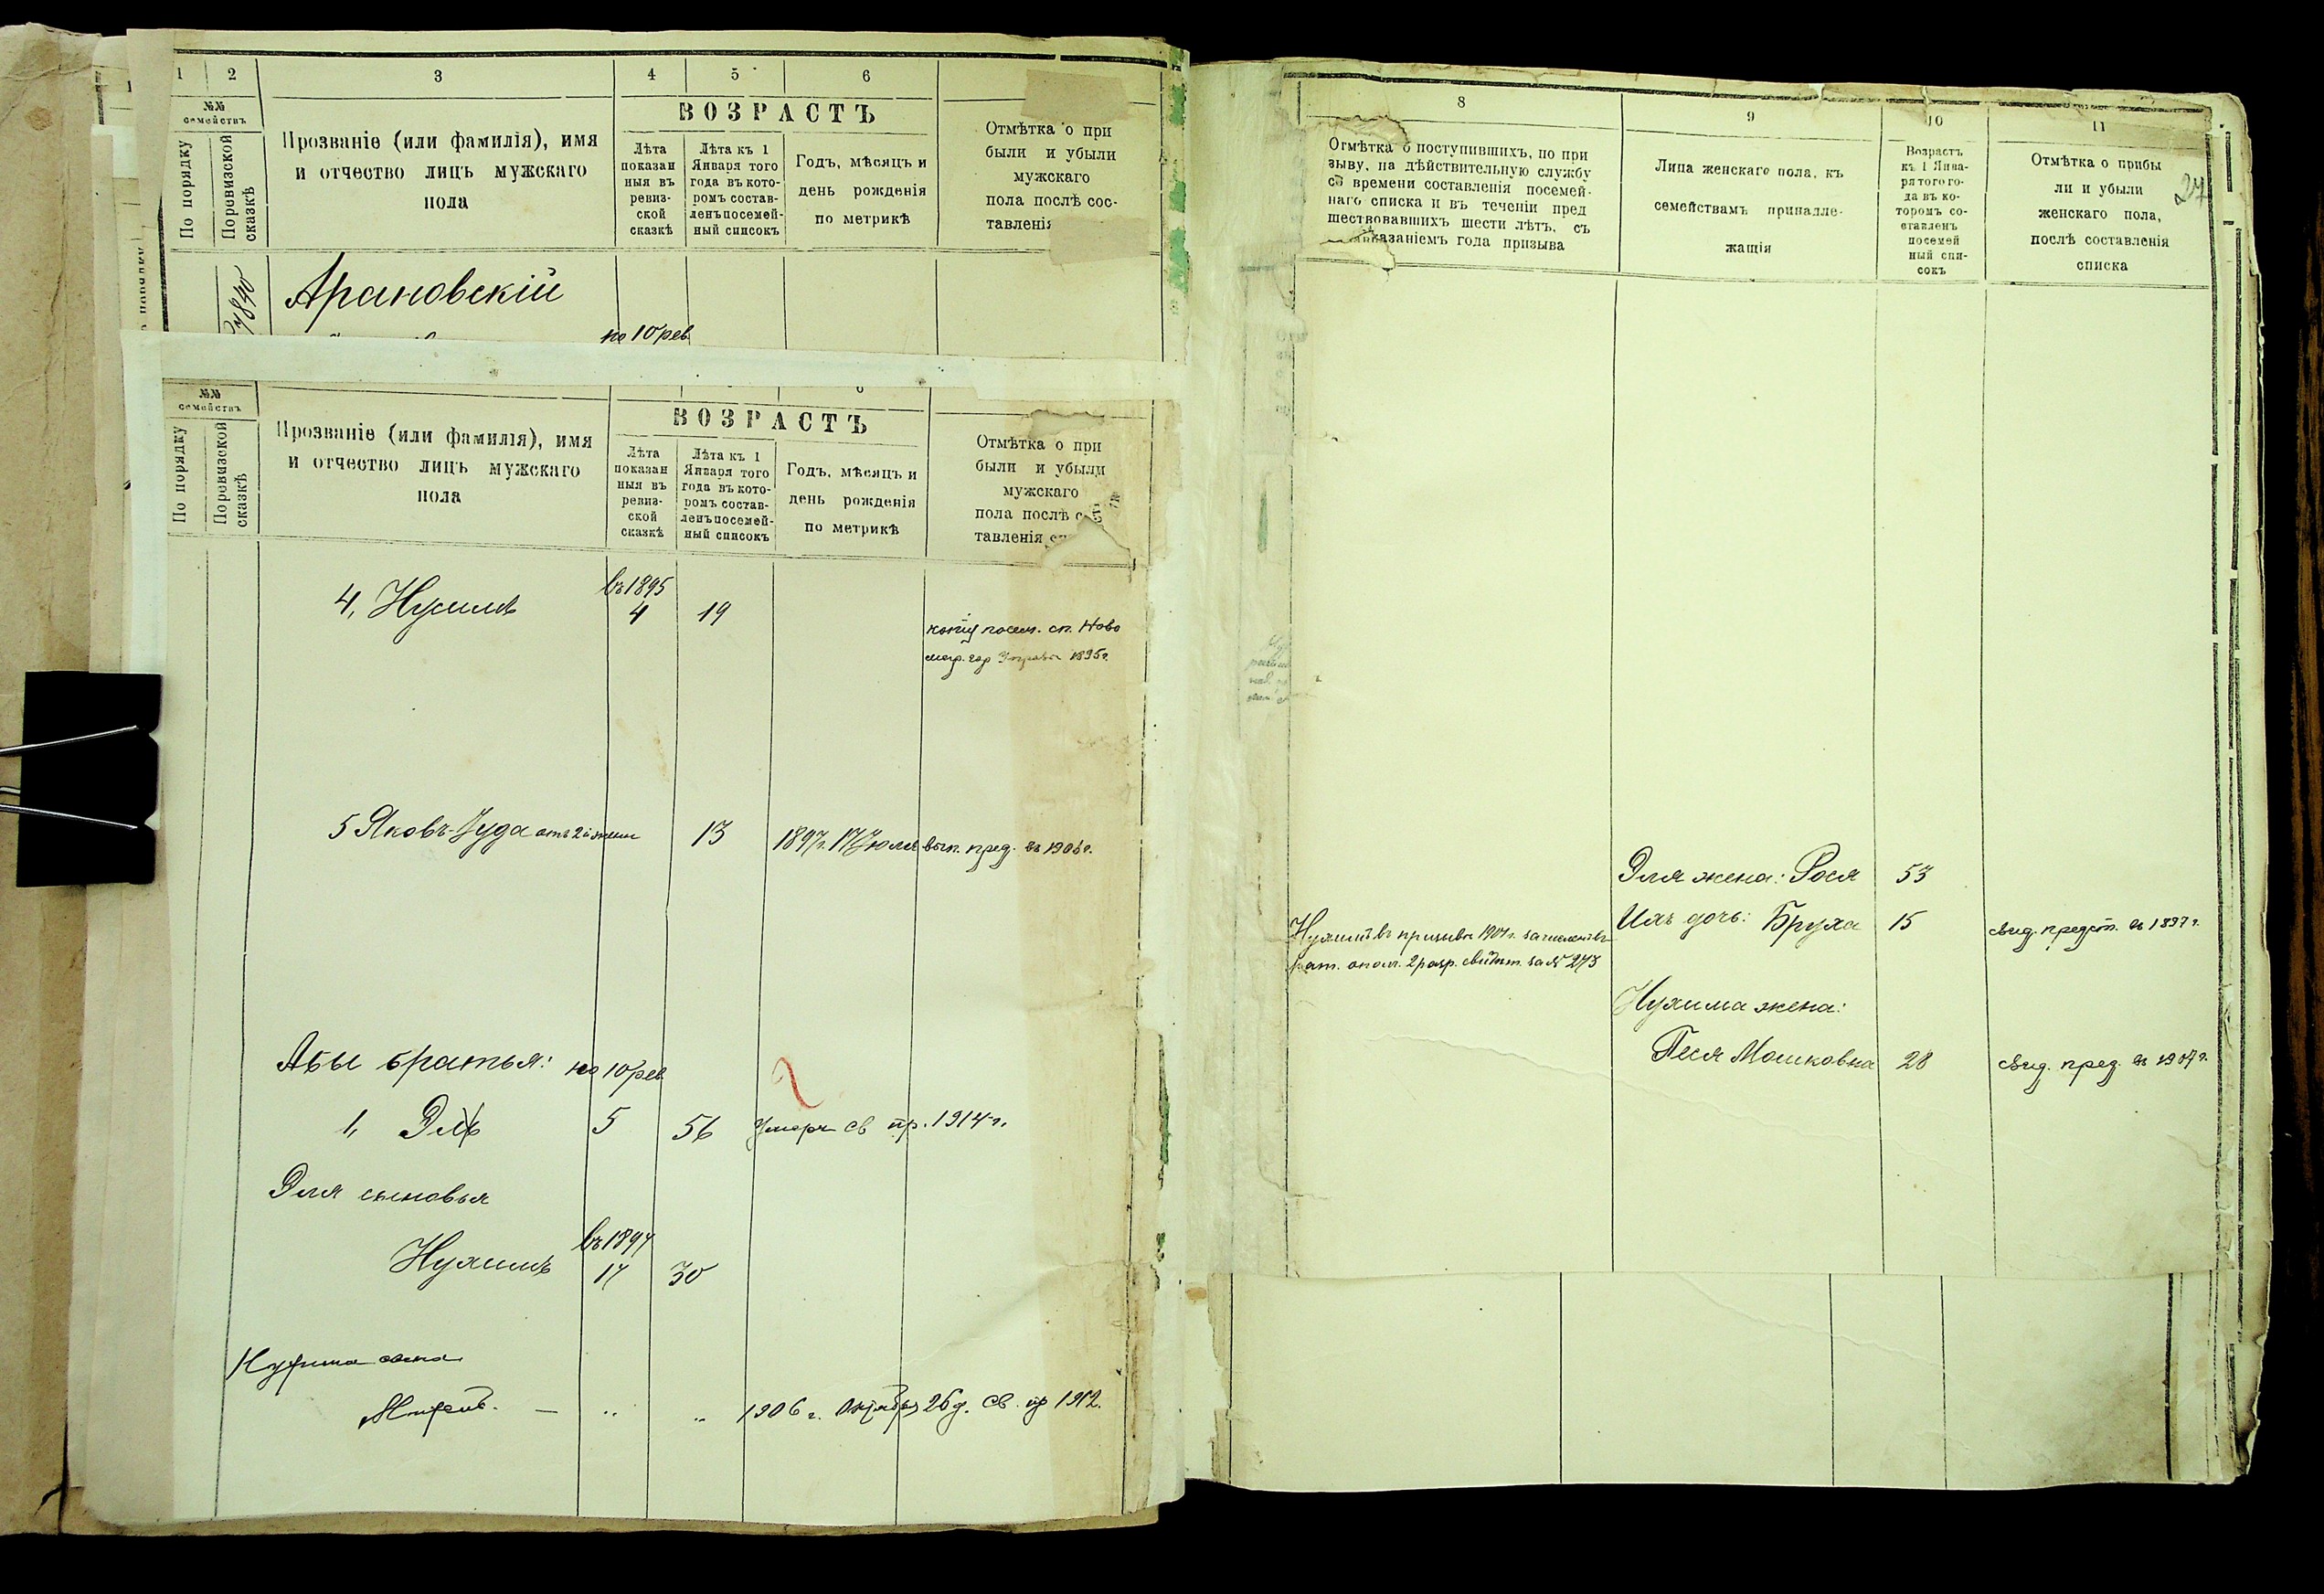 1 2 3 4 5 6
№№ семействъ
По порядку
По ревизской сказкѣ
Прозваніе (или фамилія), имя
и отчество лицъ мужскаго
пола
ВОЗРАСТЪ
Лѣта
показан
ныя въ
ревиз-
ской
сказкѣ
Лѣта къ 1
Января того
года въ кото-
ромъ состав-
ленъ посемей-
ный списокъ
Годъ, мѣсяцъ и
день рожденія
по метрикѣ
Отмѣтка о при
были и убыли
мужскаго
пола послѣ сос-
тавленія
Арановскій
по 10 рев.
№№
семействъ
По порядку
По ревизской
сказкѣ
Прозваніе (или фамилія), имя
и отчество лицъ мужскаго
пола
ВОЗРАСТЪ
Лѣта
показан
ныя въ
ревиз-
ской
сказкѣ
Лѣта къ 1
Января того
года въ кото-
ромъ состав-
ленъ посемей-
ный списокъ
Годъ, мѣсяцъ и
день рожденія
по метрикѣ
Отмѣтка о при
были и убыли
мужскаго
пола послѣ
тавленія
въ 1895
4, Нусимъ 4 19
копія посем. сп. Ново
1895 г.
5 Яковъ-Іуда отъ 2й жены 13 1897 г. 17 Іюля вып. пред. въ 1906 г.
Абы братья: по 10 рев
1, Эль 5 56 Умеръ св пр. 1914 г.
Эля сыновья
въ 1894
Нухимъ 17 30
Нухима сынъ
— " " 1906 г. Октября 26 д. св. пр 1912.
8 9 10 11
Отмѣтка о поступившихъ, по при
зыву, на дѣйствительную службу
со времени составленія посемей-
наго списка и въ теченіи пред
шествовавшихъ шести лѣтъ, съ
указаніемъ года призыва
Лица женскаго пола, къ
семействамъ принадле-
жащія
Возрастъ
къ 1 Янва-
ря того го-
да въ ко-
торомъ со-
ставленъ
посемей
ный спи-
сокъ
Отмѣтка о прибы
ли и убыли
женскаго пола,
послѣ составленія
списка
27
Эля жена: Рося 53
Ихъ дочь: Бруха 15 свид. предст. въ 1897 г.
Нухимъ въ призывѣ 1901 г. зачисленъ въ
рат. опол. 2 разр. свидѣт. за № 273
Нухима жена:
Песя Мошковна 28 свид. пред. въ 1907 г.